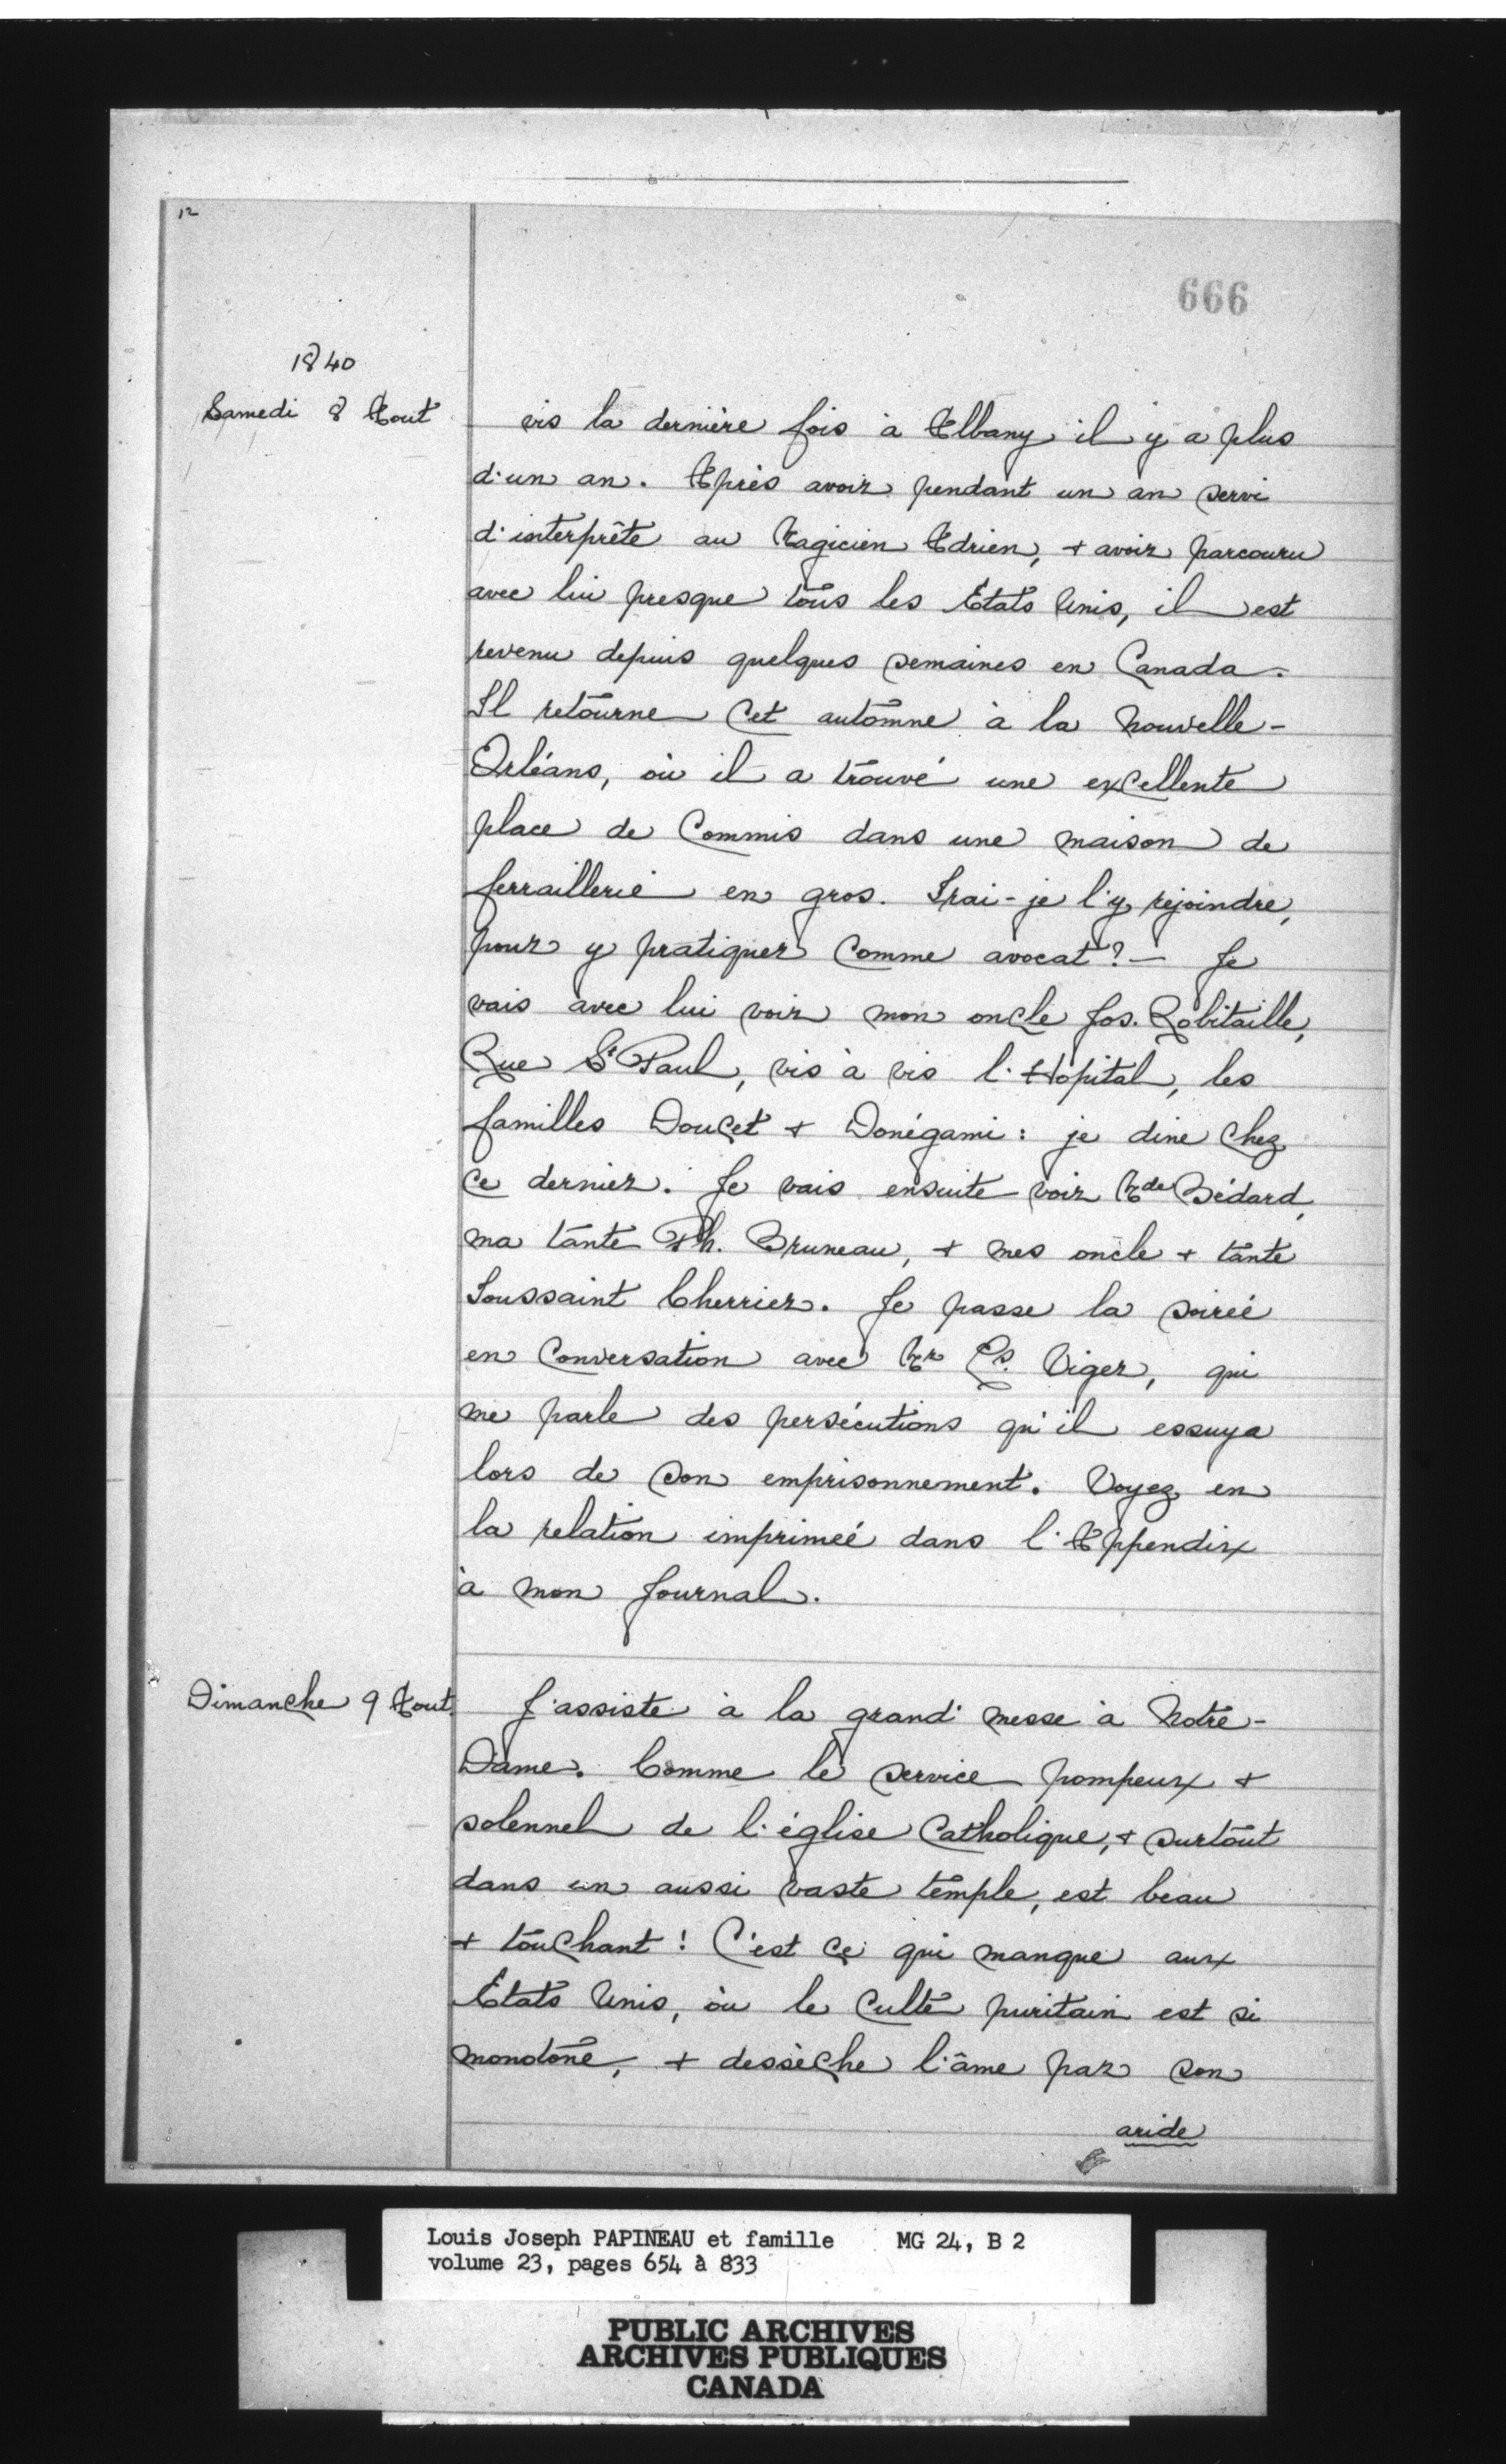 12
666
1840
Samedi 8 Aout
vis la dernière fois à Albany il y a plus
d'un an. Après avoir pendant un an servi
d'interprête au Magicien Adrien, + avoir parcouru
avec lui presque tous les États Unis, il est
revenu depuis quelques semaines en Canada.
Il retourne cet automne à la Nouvelle-
Orléans, où il a trouvé une excellente
place de Commis dans une maison de
ferraillerie en gros. Irai-je l'y rejoindre,
pour y pratiquer comme avocat? — Je
vais avec lui voir mon oncle Jos. Robitaille,
Rue St Paul, vis à vis l'Hopital, les
familles Doucet + Donégami: je dine chez
ce dernier. Je vais ensuite voir Mde Bédard,
ma tante Th. Bruneau, + mes oncle + tante
Toussaint Cherrier. Je passe la soirée
en conversation avec Mr Ls. Viger, qui
me parle des persécutions qu'il essuya
lors de son emprisonnement. Voyez en
la relation imprimeé dans l'Appendix
à mon Journal.
Dimanche 9 Aout.
J'assiste à la grand' messe à Notre-
Dame. Comme le service pompeux +
solennel de l'église Catholique, + surtout
dans un aussi vaste temple, est beau
+ touchant! C'est ce qui manque aux
États Unis, où le culte puritain est si
monotone, + dessèche l'âme par son
aride
Louis Joseph PAPINEAU et famille MG 24, B 2
volume 23, pages 654 à 833
PUBLIC ARCHIVES
ARCHIVES PUBLIQUES
CANADA